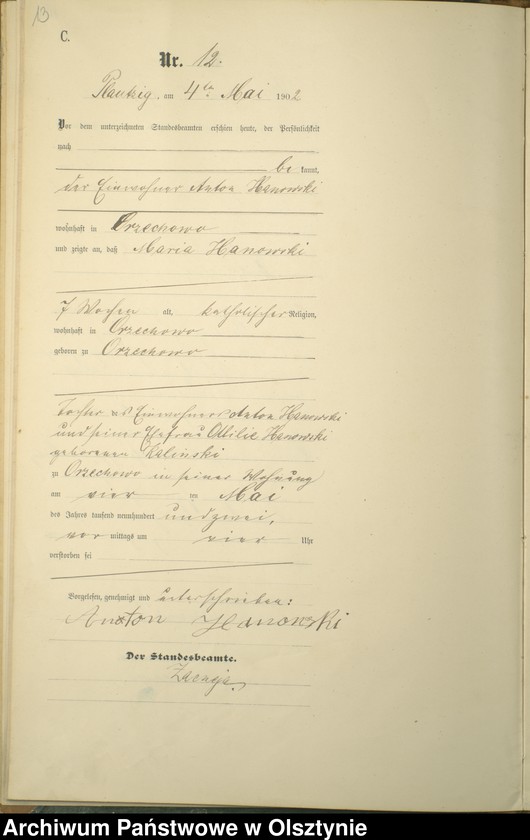 13
C.
Nr. 12.
Plautzig, am 4ten Mai 1902
Vor dem unterzeichneten Standesbeamten erschien heute, der Persönlichkeit
nach
be kannt,
der Einwohner Anton Hanowski
wohnhaft in Orzechowo
und zeigte an, daß Maria Hanowski
7 Wochen alt, katholischer Religion,
wohnhaft in Orzechowo
geboren zu Orzechowo
Tochter des Einwohners Anton Hanowski
und seiner Ehefrau Ottilie Hanowski
geborenen Kalinski
zu Orzechowo in seiner Wohnung
am vier ten Mai
des Jahres tausend neunhundert und zwei,
vor mittags um vier Uhr
verstorben sei
Vorgelesen, genehmigt und unterschrieben:
Anton Hanowski
Der Standesbeamte.
Archiwum Państwowe w Olsztynie